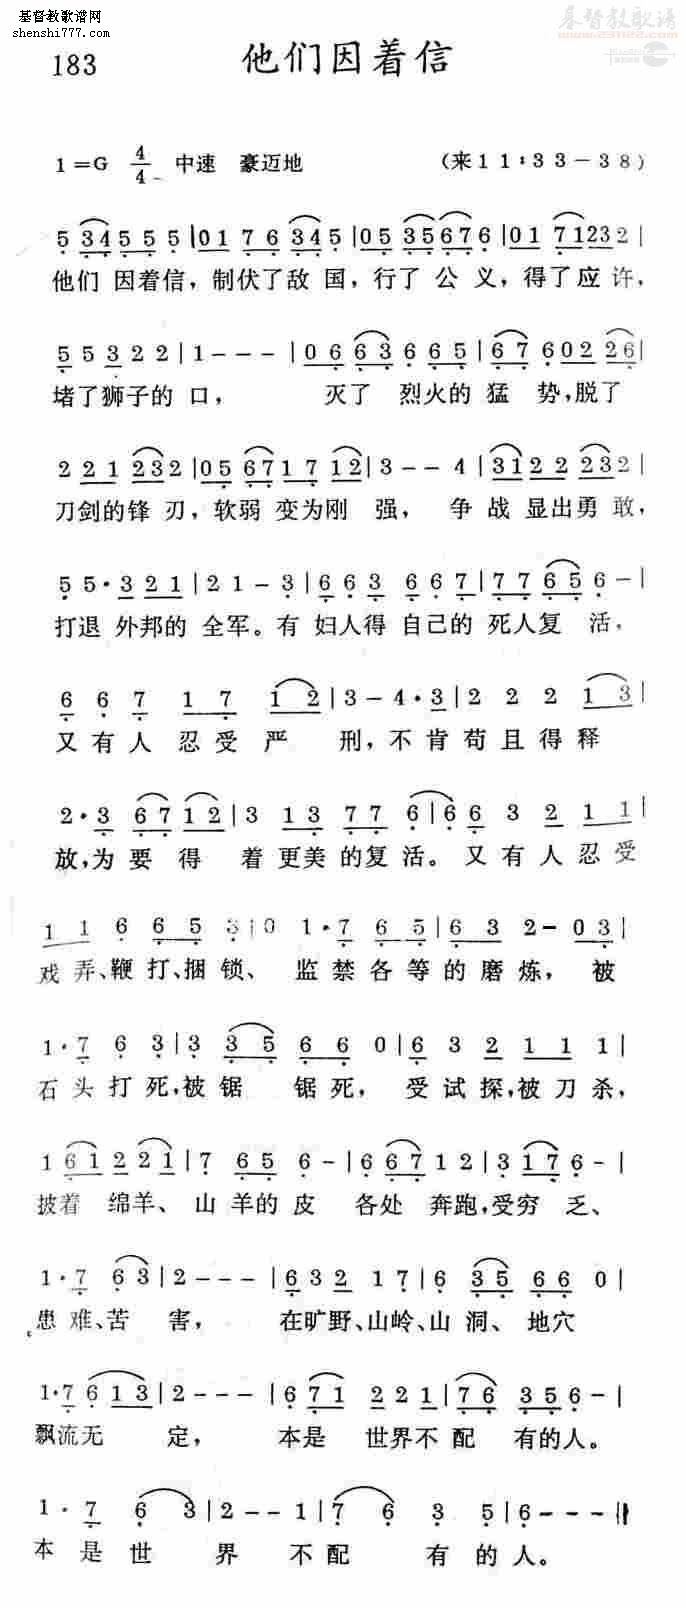 基督教歌谱网
shenshi777.com
基督教歌谱
183
他们因着信
1=G 4/4 中速 豪迈地 (来11:33-38)
5 3 4 5 5 5 | 0 1 7 6 3 4 5 | 0 5 3 5 6 7 6 | 0 1 7 1 2 3 2 |
他们 因着信，制伏了敌 国，行了 公 义，得了应 许，
5 5 3 2 2 | 1 - - - | 0 6 6 3 6 6 5 | 6 7 6 0 2 2 6 |
堵了狮子的 口， 灭了 烈火的 猛 势，脱了
2 2 1 2 3 2 | 0 5 6 7 1 7 1 2 | 3 - - 4 | 3 1 2 2 2 3 2 |
刀剑的锋 刃，软弱 变为刚 强， 争 战 显出勇 敢，
5 5 · 3 2 1 | 2 1 - 3 | 6 6 3 6 6 7 | 7 7 6 5 6 - |
打退 外邦的 全军。有 妇人得 自己的 死人复 活，
6 6 7 1 7 1 2 | 3 - 4 · 3 | 2 2 2 1 3 |
又 有 人 忍 受 严 刑，不 肯 苟 且 得 释
2 · 3 6 7 1 2 | 3 1 3 7 7 6 | 6 6 3 2 1 1 |
放，为 要 得 着 更美 的 复 活。又 有 人 忍 受
1 1 6 6 5 3 | 0 1 · 7 6 5 | 6 3 2 - 0 3 |
戏 弄、鞭 打、捆 锁、 监 禁 各 等 的 磨 炼， 被
1 · 7 6 3 | 3 3 5 6 6 0 | 6 3 2 1 1 1 |
石 头 打 死，被 锯 锯 死， 受 试 探，被 刀 杀，
1 6 1 2 2 1 | 7 6 5 6 - | 6 6 7 1 2 | 3 1 7 6 - |
披着 绵羊、山 羊的 皮 各处 奔跑，受穷 乏、
1 · 7 6 3 | 2 - - - | 6 3 2 1 7 | 6 3 5 6 6 0 |
患 难、苦 害， 在旷野、山岭、山 洞、地穴
1 · 7 6 1 3 | 2 - - - | 6 7 1 2 2 1 | 7 6 3 5 6 - |
飘流无 定， 本是 世界不 配 有的人。
1 · 7 6 3 | 2 - - 1 | 7 6 3 5 | 6 - - - ‖
本 是 世 界 不 配 有 的 人。